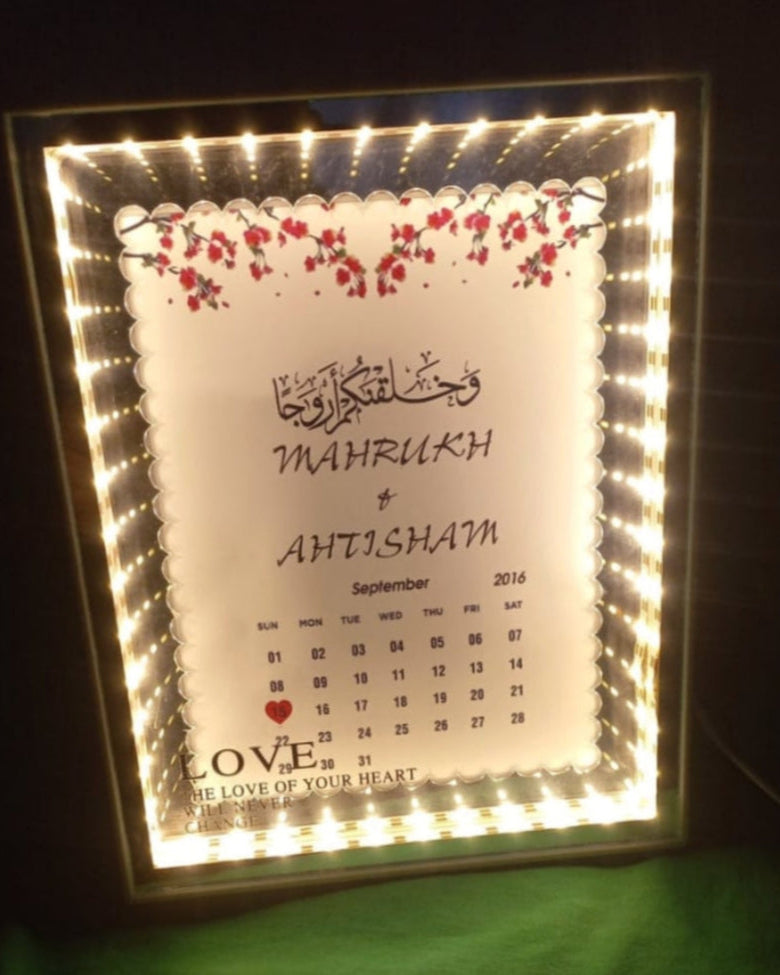 وَخَلَقْنَكُمْ أَزْوَجًا
MAHRUKH
&
AHTISHAM
September 2016
SUN MON TUE WED THU FRI SAT
01 02 03 04 05 06 07
08 09 10 11 12 13 14
15 16 17 18 19 20 21
22 23 24 25 26 27 28
29 30 31
LOVE
THE LOVE OF YOUR HEART
WILL NEVER
CHANGE